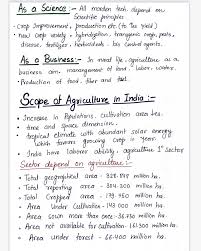 As a Science :- All modern tech depend on
Scientific principles
- Crop Improvement, production etc (to the yield)
- new crop variety, hybridization, transgenic crop, pests,
disease, fertilizer, herbicides, bio control agents.
As a Business:- In most life, agriculture as a
business aim, management of land, labor, water.
• Production of food, fiber and fuel.
Scope of Agriculture in India :-
• Increase in Populations, cultivation area less.
• time and space dimension.
• tropical climate with abundant solar energy
which favours growing crop & year.
• India have laborer ability, agriculture 1st sector
Sector depend on agriculture :-
• Total geographical area - 328.848 million ha.
• Total reporting area - 304.300 million ha.
• Total Cropped area - 179.750 million ha.
• Area Under Cultivation - 143.000 million ha.
• Area sown more than once - 36.750 million ha.
• Area not available for cultivation - 161.300 million ha.
• Area under forest - 66.400 million ha.